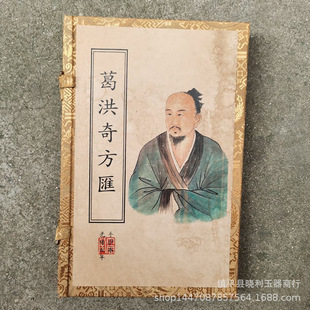 葛洪奇方匯
镇平县晓利玉器商行
shop1447087857564.1688.com